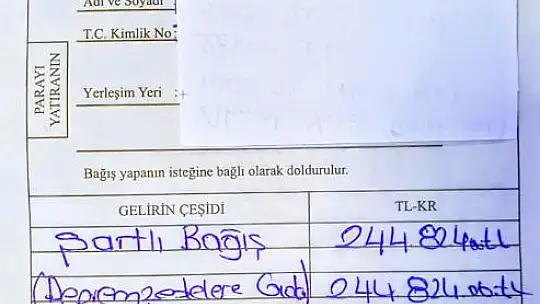 Adı ve Soyadı
T.C. Kimlik No :
PARAYI
YATIRANIN
Yerleşim Yeri :
Bağış yapanın isteğine bağlı olarak doldurulur.
GELİRİN ÇEŞİDİ TL-KR
Şartlı Bağış 244.824.00.tl
(Depremzedelere Gıda) 244.824.00.tl